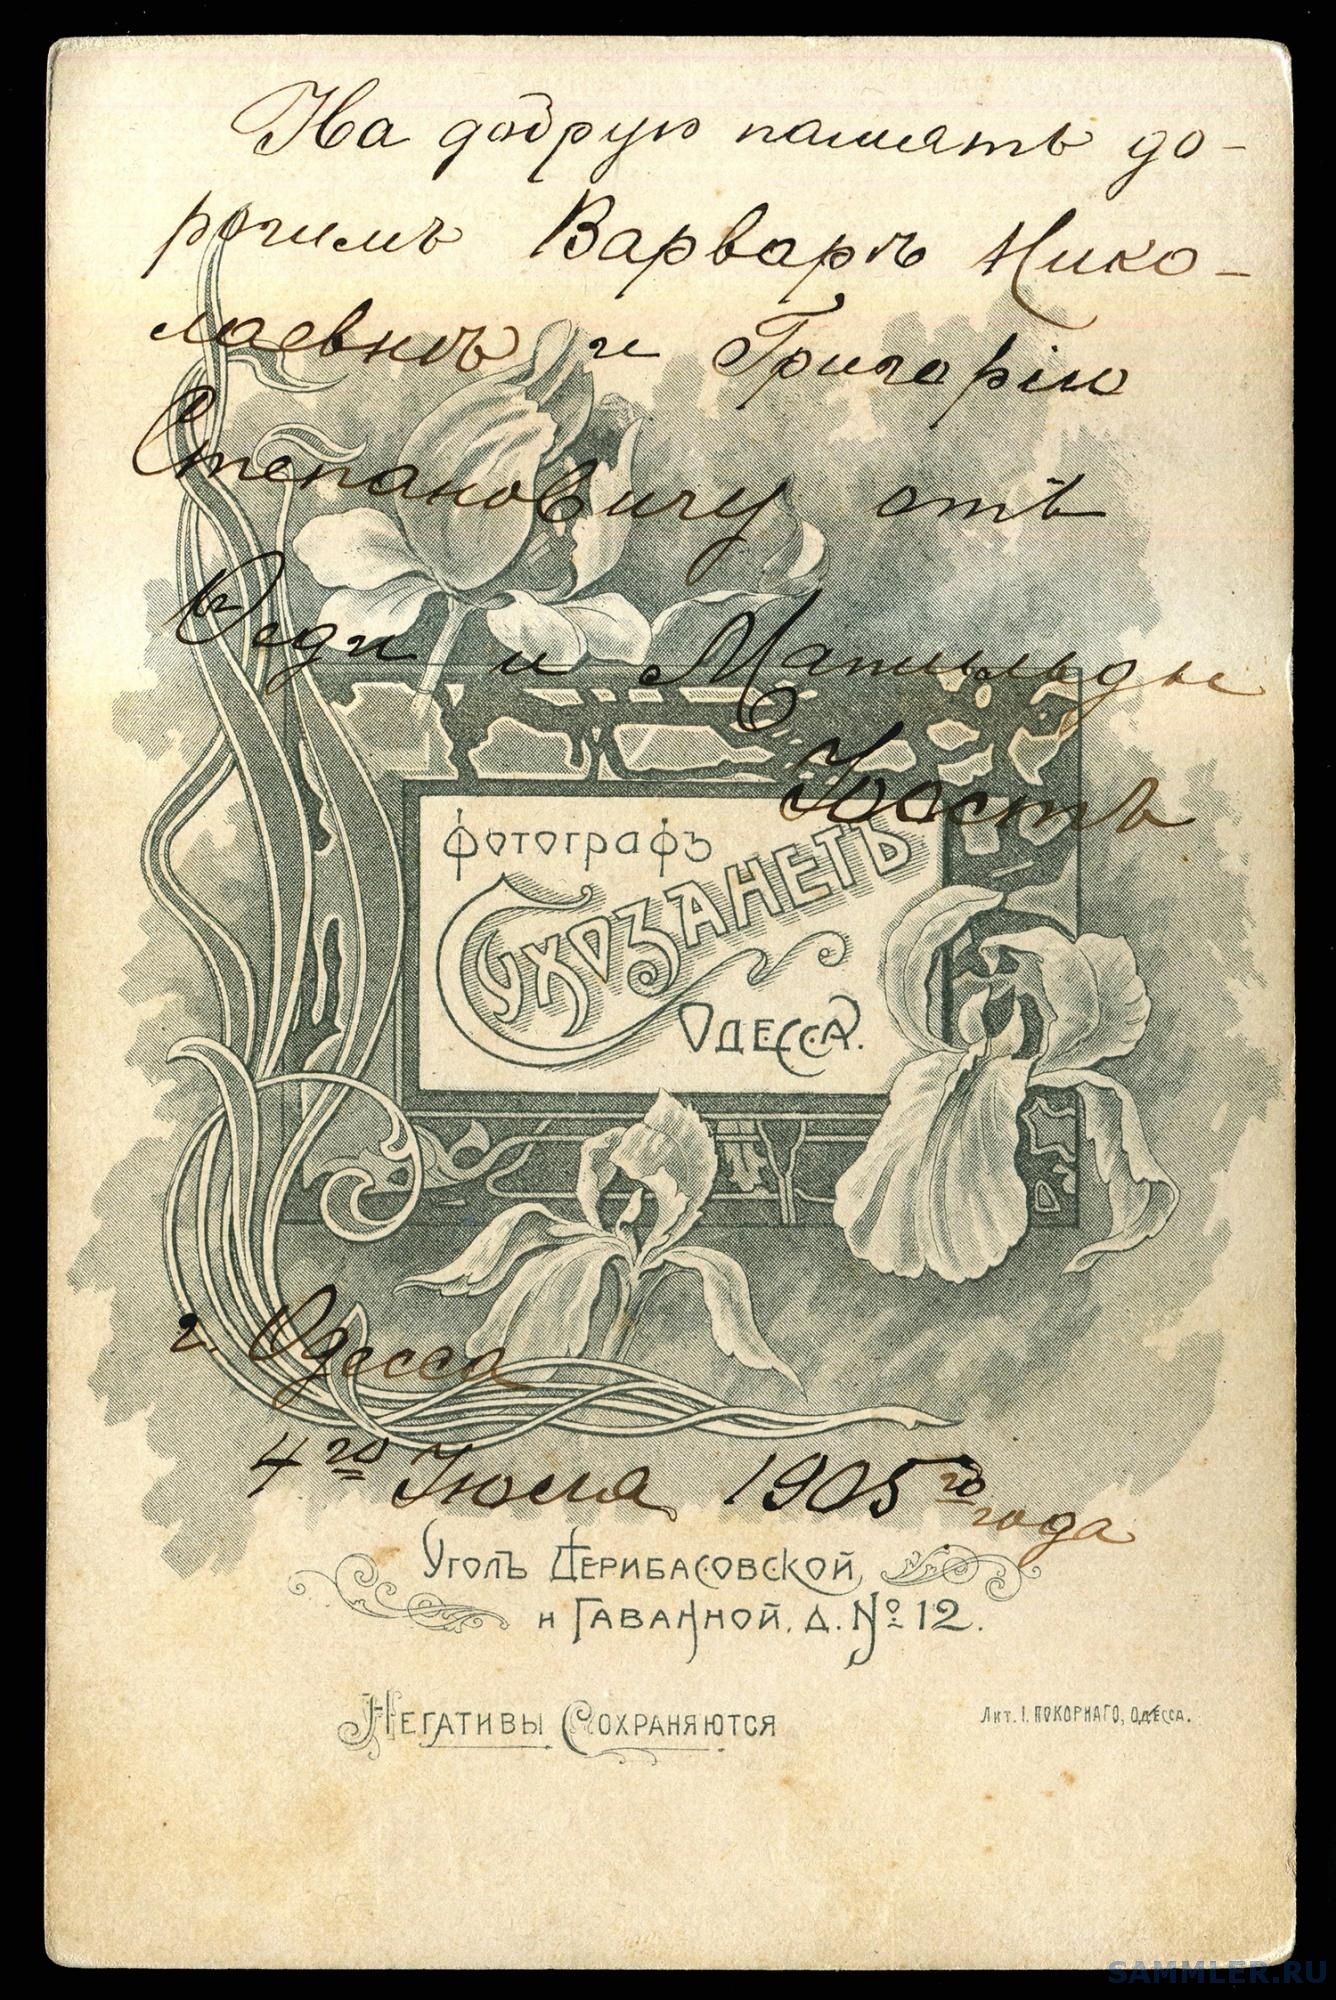 На добрую память до-
рогимъ Варварѣ Нико-
лаевнѣ и Григорію
Степановичу отъ
и Матильды
Юостъ
Фотографъ
Сухозанетъ
Одесса.
г. Одесса
4го Июля 1905го года
Уголъ Дерибасовской,
и Гаванной, д. № 12.
Негативы Сохраняются
Лит. І. Покорнаго, Одесса.
SAMMLER.RU